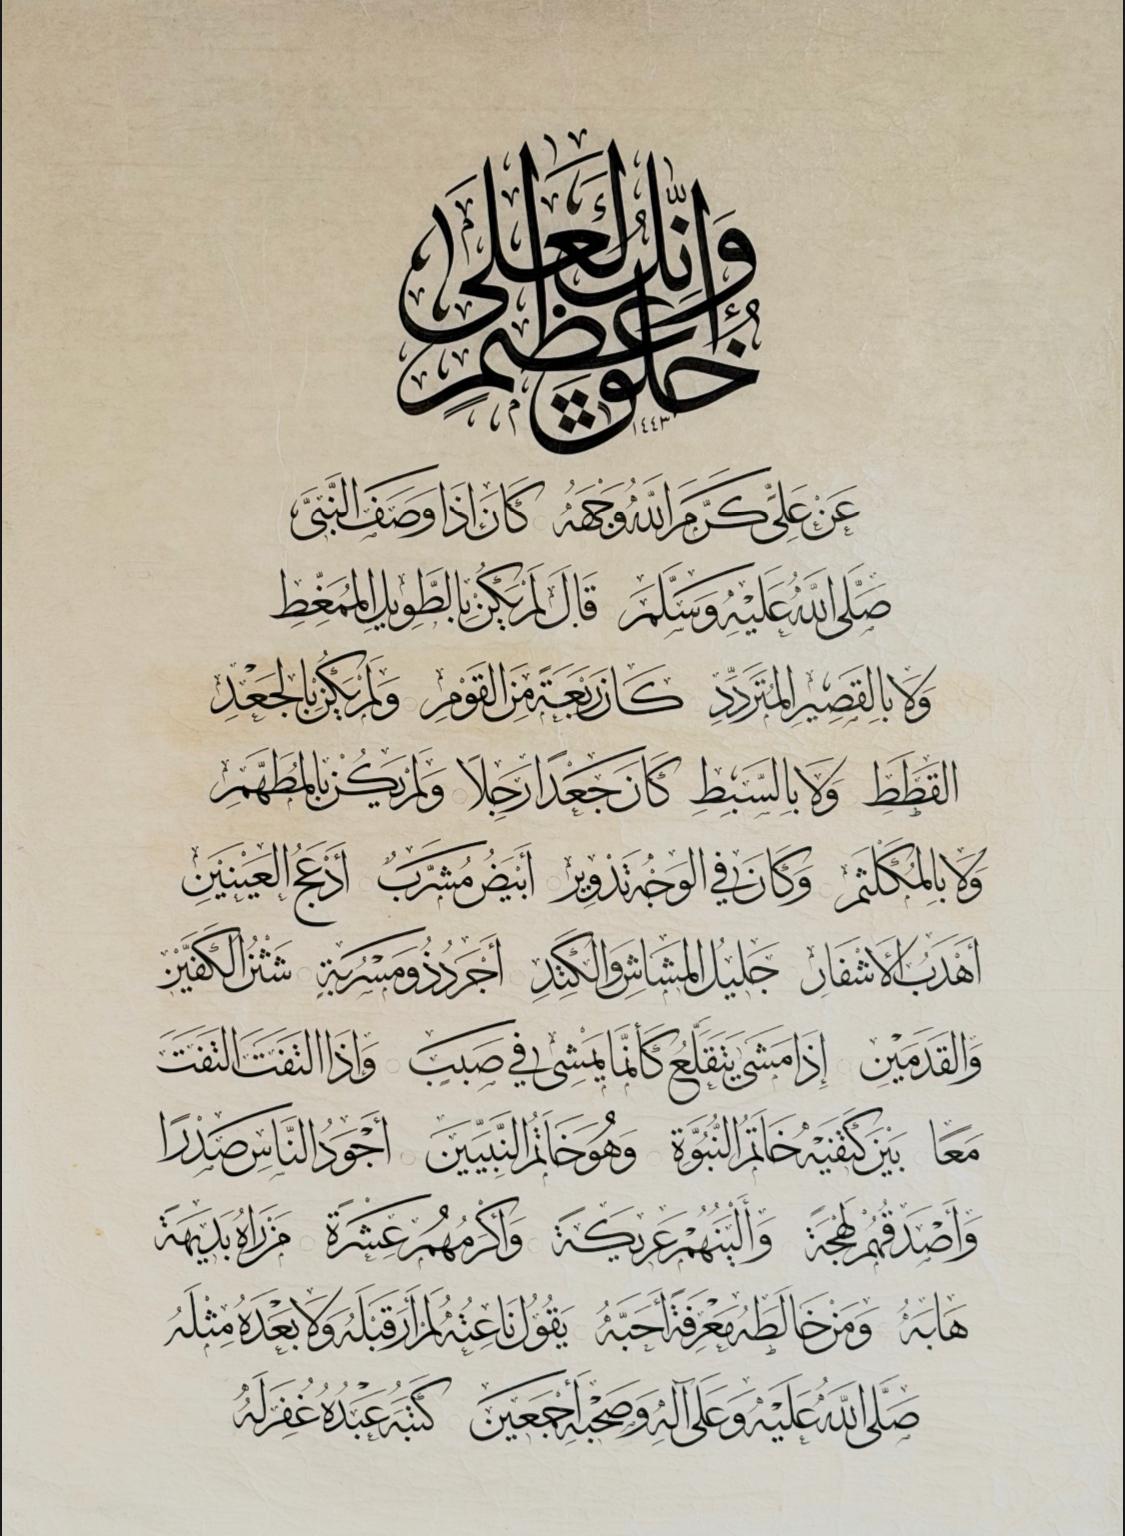 وَإِنَّكَ لَعَلَى
خُلُقٍ عَظِيمٍ
١٤٤٣
عَنْ عَلِيٍّ كَرَّمَ اللَّهُ وَجْهَهُ كَانَ إِذَا وَصَفَ النَّبِيَّ
صَلَّى اللَّهُ عَلَيْهِ وَسَلَّمَ قَالَ لَمْ يَكُنْ بِالطَّوِيلِ الْمُمَّغِطِ
وَلَا بِالْقَصِيرِ الْمُتَرَدِّدِ كَانَ رَبْعَةً مِنَ الْقَوْمِ وَلَمْ يَكُنْ بِالْجَعْدِ
الْقَطَطِ وَلَا بِالسَّبِطِ كَانَ جَعْدًا رَجِلًا وَلَمْ يَكُنْ بِالْمُطَهَّمِ
وَلَا بِالْمُكَلْثَمِ وَكَانَ فِي الْوَجْهِ تَدْوِيرٌ أَبْيَضُ مُشْرَبٌ أَدْعَجُ الْعَيْنَيْنِ
أَهْدَبُ الْأَشْفَارِ جَلِيلُ الْمُشَاشِ وَالْكَتَدِ أَجْرَدُ ذُو مَسْرُبَةٍ شَثْنُ الْكَفَّيْنِ
وَالْقَدَمَيْنِ إِذَا مَشَى يَتَقَلَّعُ كَأَنَّمَا يَمْشِي فِي صَبَبٍ وَإِذَا الْتَفَتَ الْتَفَتَ
مَعًا بَيْنَ كَتِفَيْهِ خَاتَمُ النُّبُوَّةِ وَهُوَ خَاتَمُ النَّبِيِّينَ أَجْوَدُ النَّاسِ صَدْرًا
وَأَصْدَقُهُمْ لَهْجَةً وَأَلْيَنُهُمْ عَرِيكَةً وَأَكْرَمُهُمْ عِشْرَةً مَنْ رَآهُ بَدِيهَةً
هَابَهُ وَمَنْ خَالَطَهُ مَعْرِفَةً أَحَبَّهُ يَقُولُ نَاعِتُهُ لَمْ أَرَ قَبْلَهُ وَلَا بَعْدَهُ مِثْلَهُ
صَلَّى اللَّهُ عَلَيْهِ وَعَلَى آلِهِ وَصَحْبِهِ أَجْمَعِينَ كَتَبَهُ عَبْدُهُ غُفِرَ لَهُ